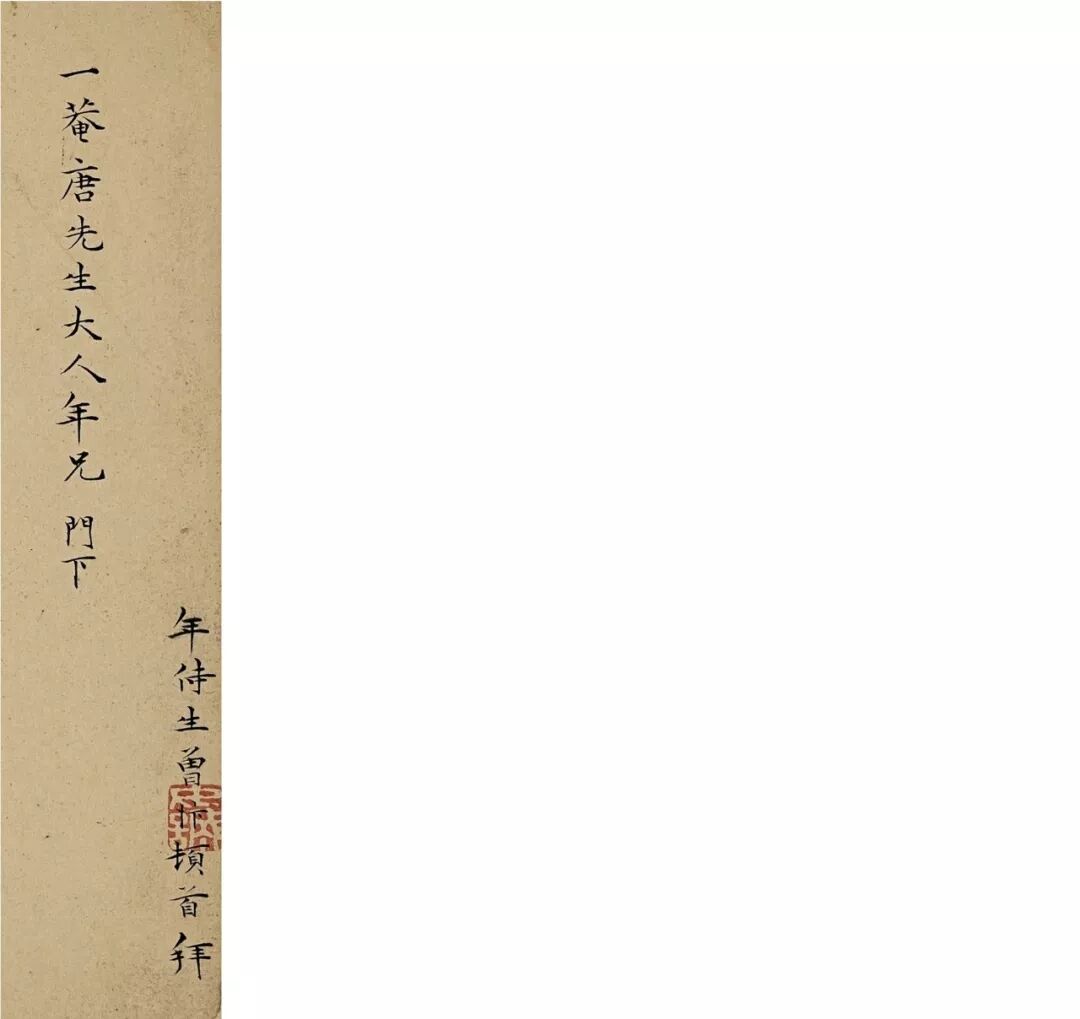 年侍生曾忭頓首拜
一菴唐先生大人年兄 門下